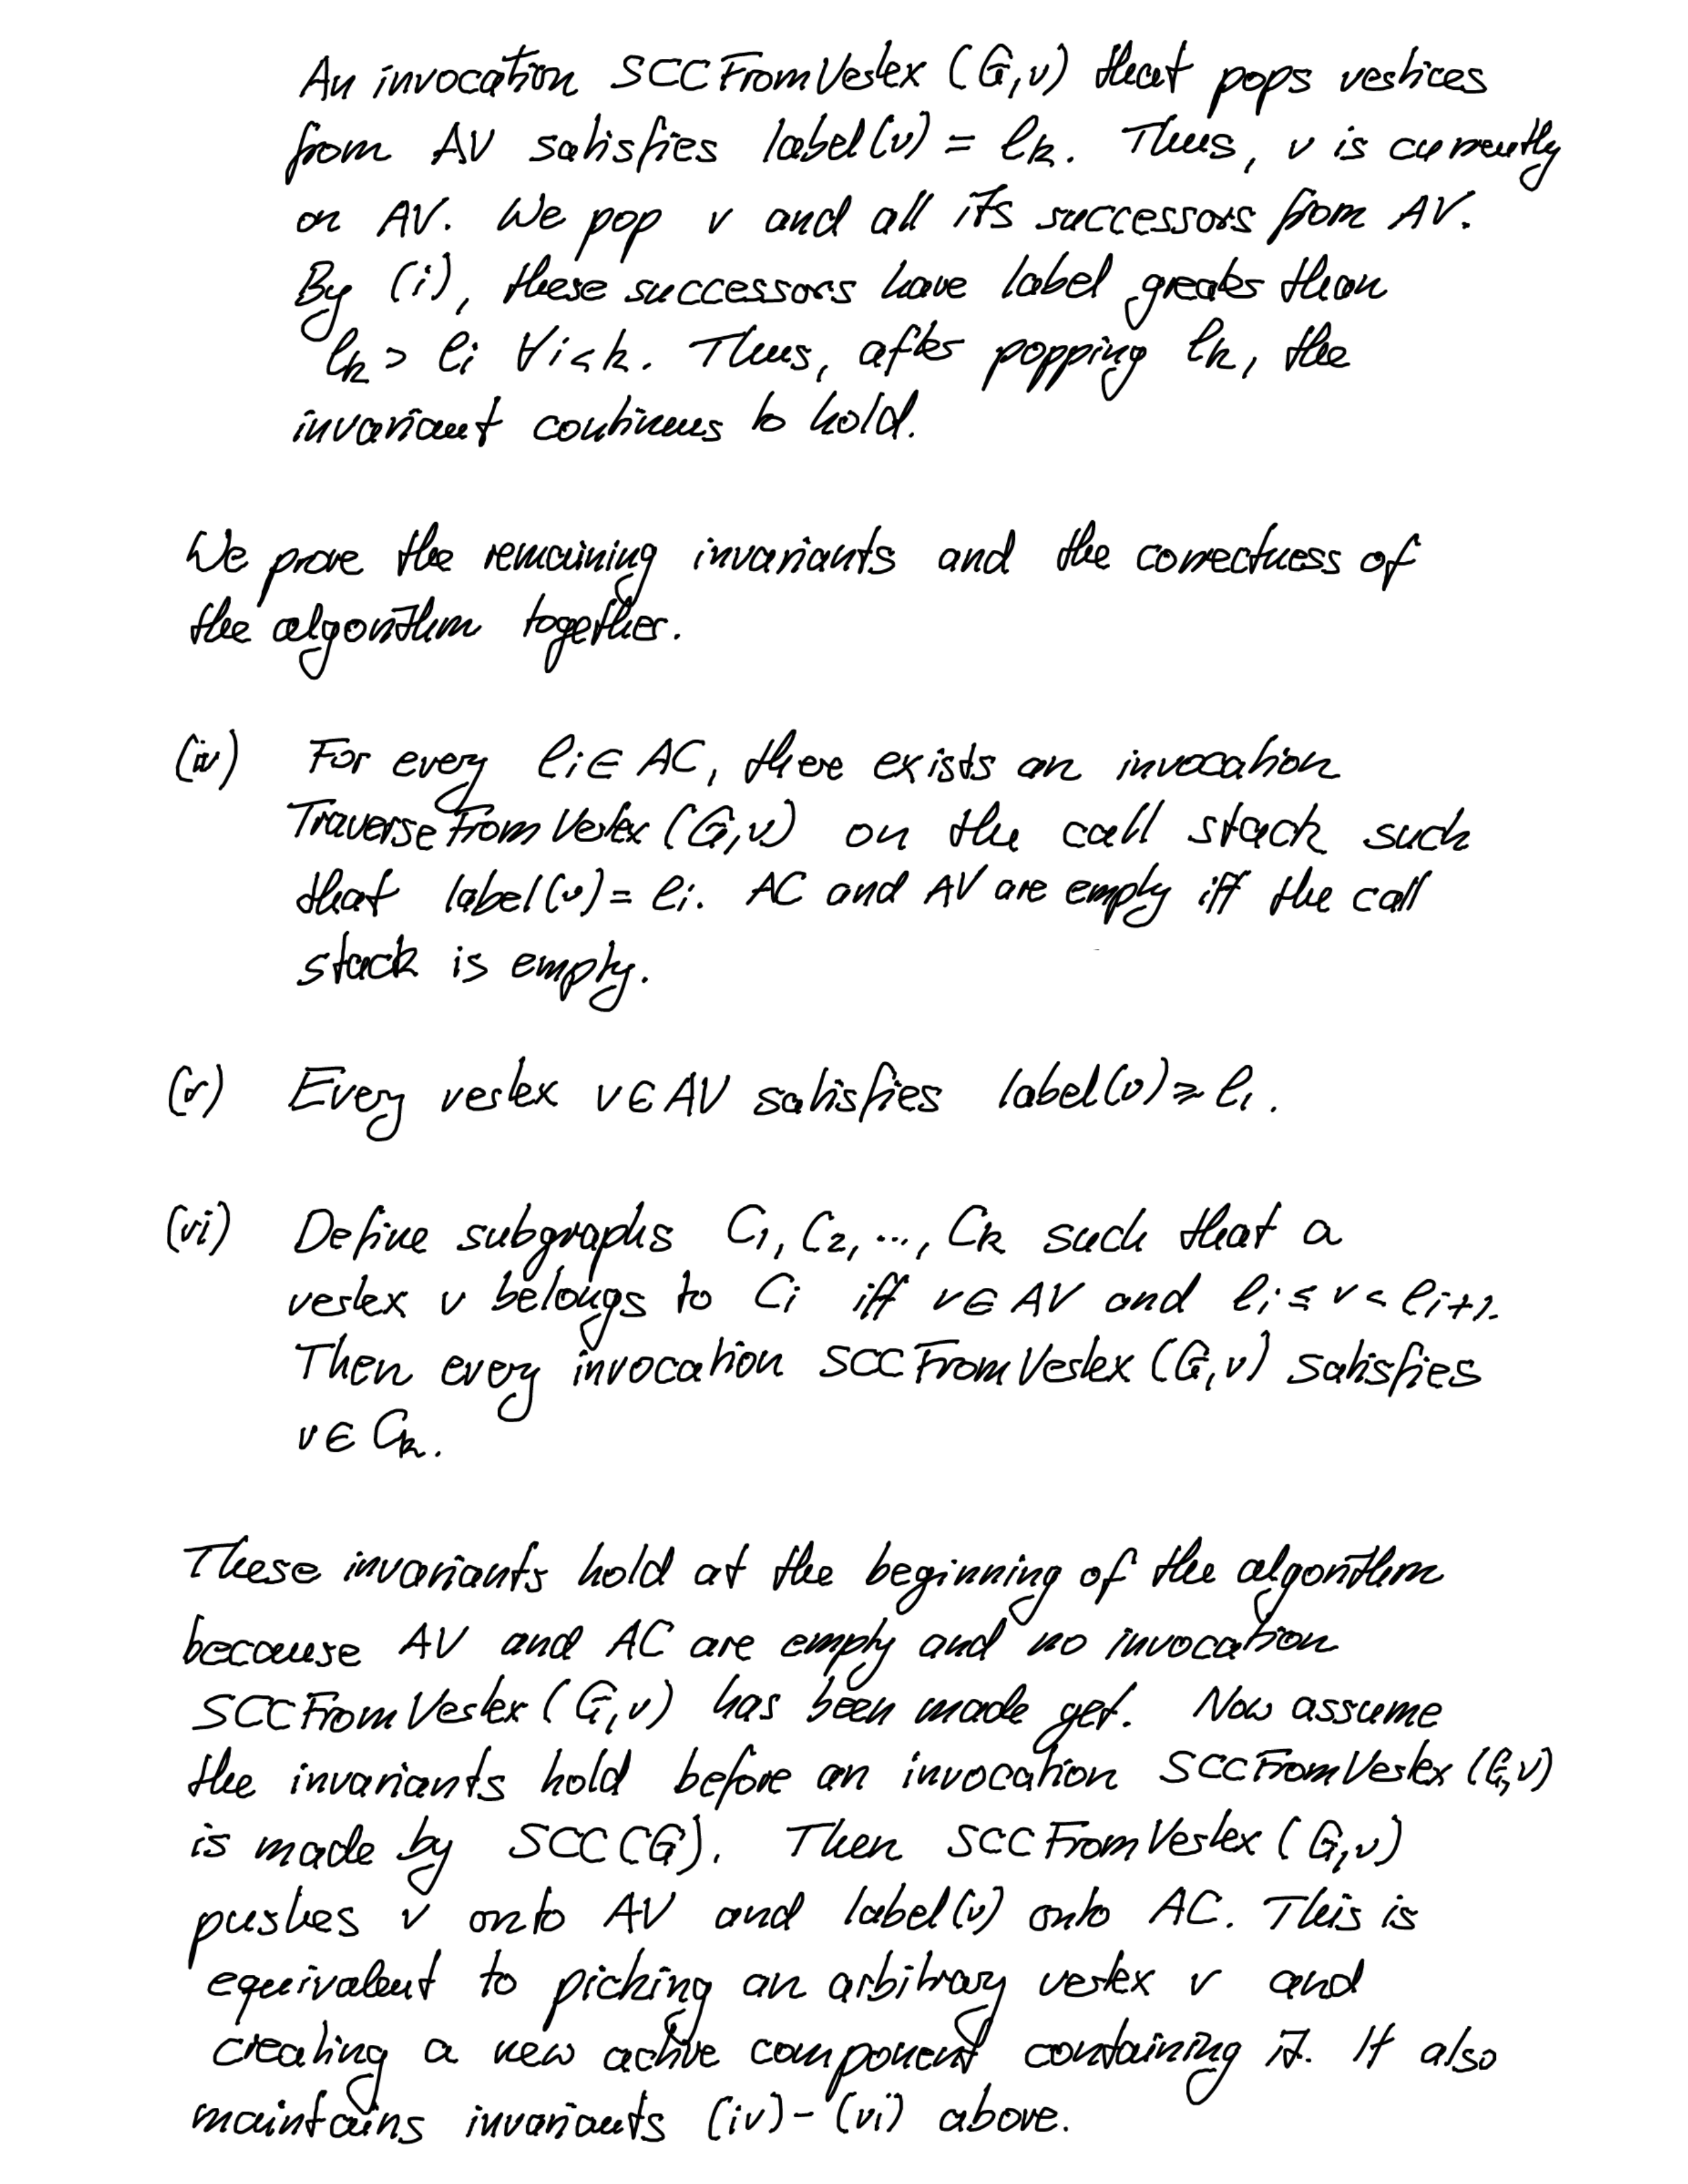 An invocation SCCFromVertex (G,v) that pops vertices
from AV satisfies label(v) = lk. Thus, v is currently
on AV. We pop v and all its successors from AV.
By (i), these successors have label greater than
lk > li ∀i<k. Thus, after popping lk, the
invariant continues to hold.
We prove the remaining invariants and the correctness of
the algorithm together.
(iv) For every li ∈ AC, there exists an invocation
TraverseFromVertex (G,v) on the call stack such
that label(v) = li. AC and AV are empty iff the call
stack is empty.
(v) Every vertex v ∈ AV satisfies label(v) ≥ l1.
(vi) Define subgraphs C1, C2, ..., Ck such that a
vertex v belongs to Ci iff v ∈ AV and li ≤ v < li+1.
Then every invocation SCCFromVertex (G,v) satisfies
v ∈ Ck.
These invariants hold at the beginning of the algorithm
because AV and AC are empty and no invocation
SCCFromVertex (G,v) has been made yet. Now assume
the invariants hold before an invocation SCCFromVertex (G,v)
is made by SCC(G). Then SCCFromVertex (G,v)
pushes v onto AV and label(v) onto AC. This is
equivalent to picking an arbitrary vertex v and
creating a new active component containing it. It also
maintains invariants (iv)-(vi) above.